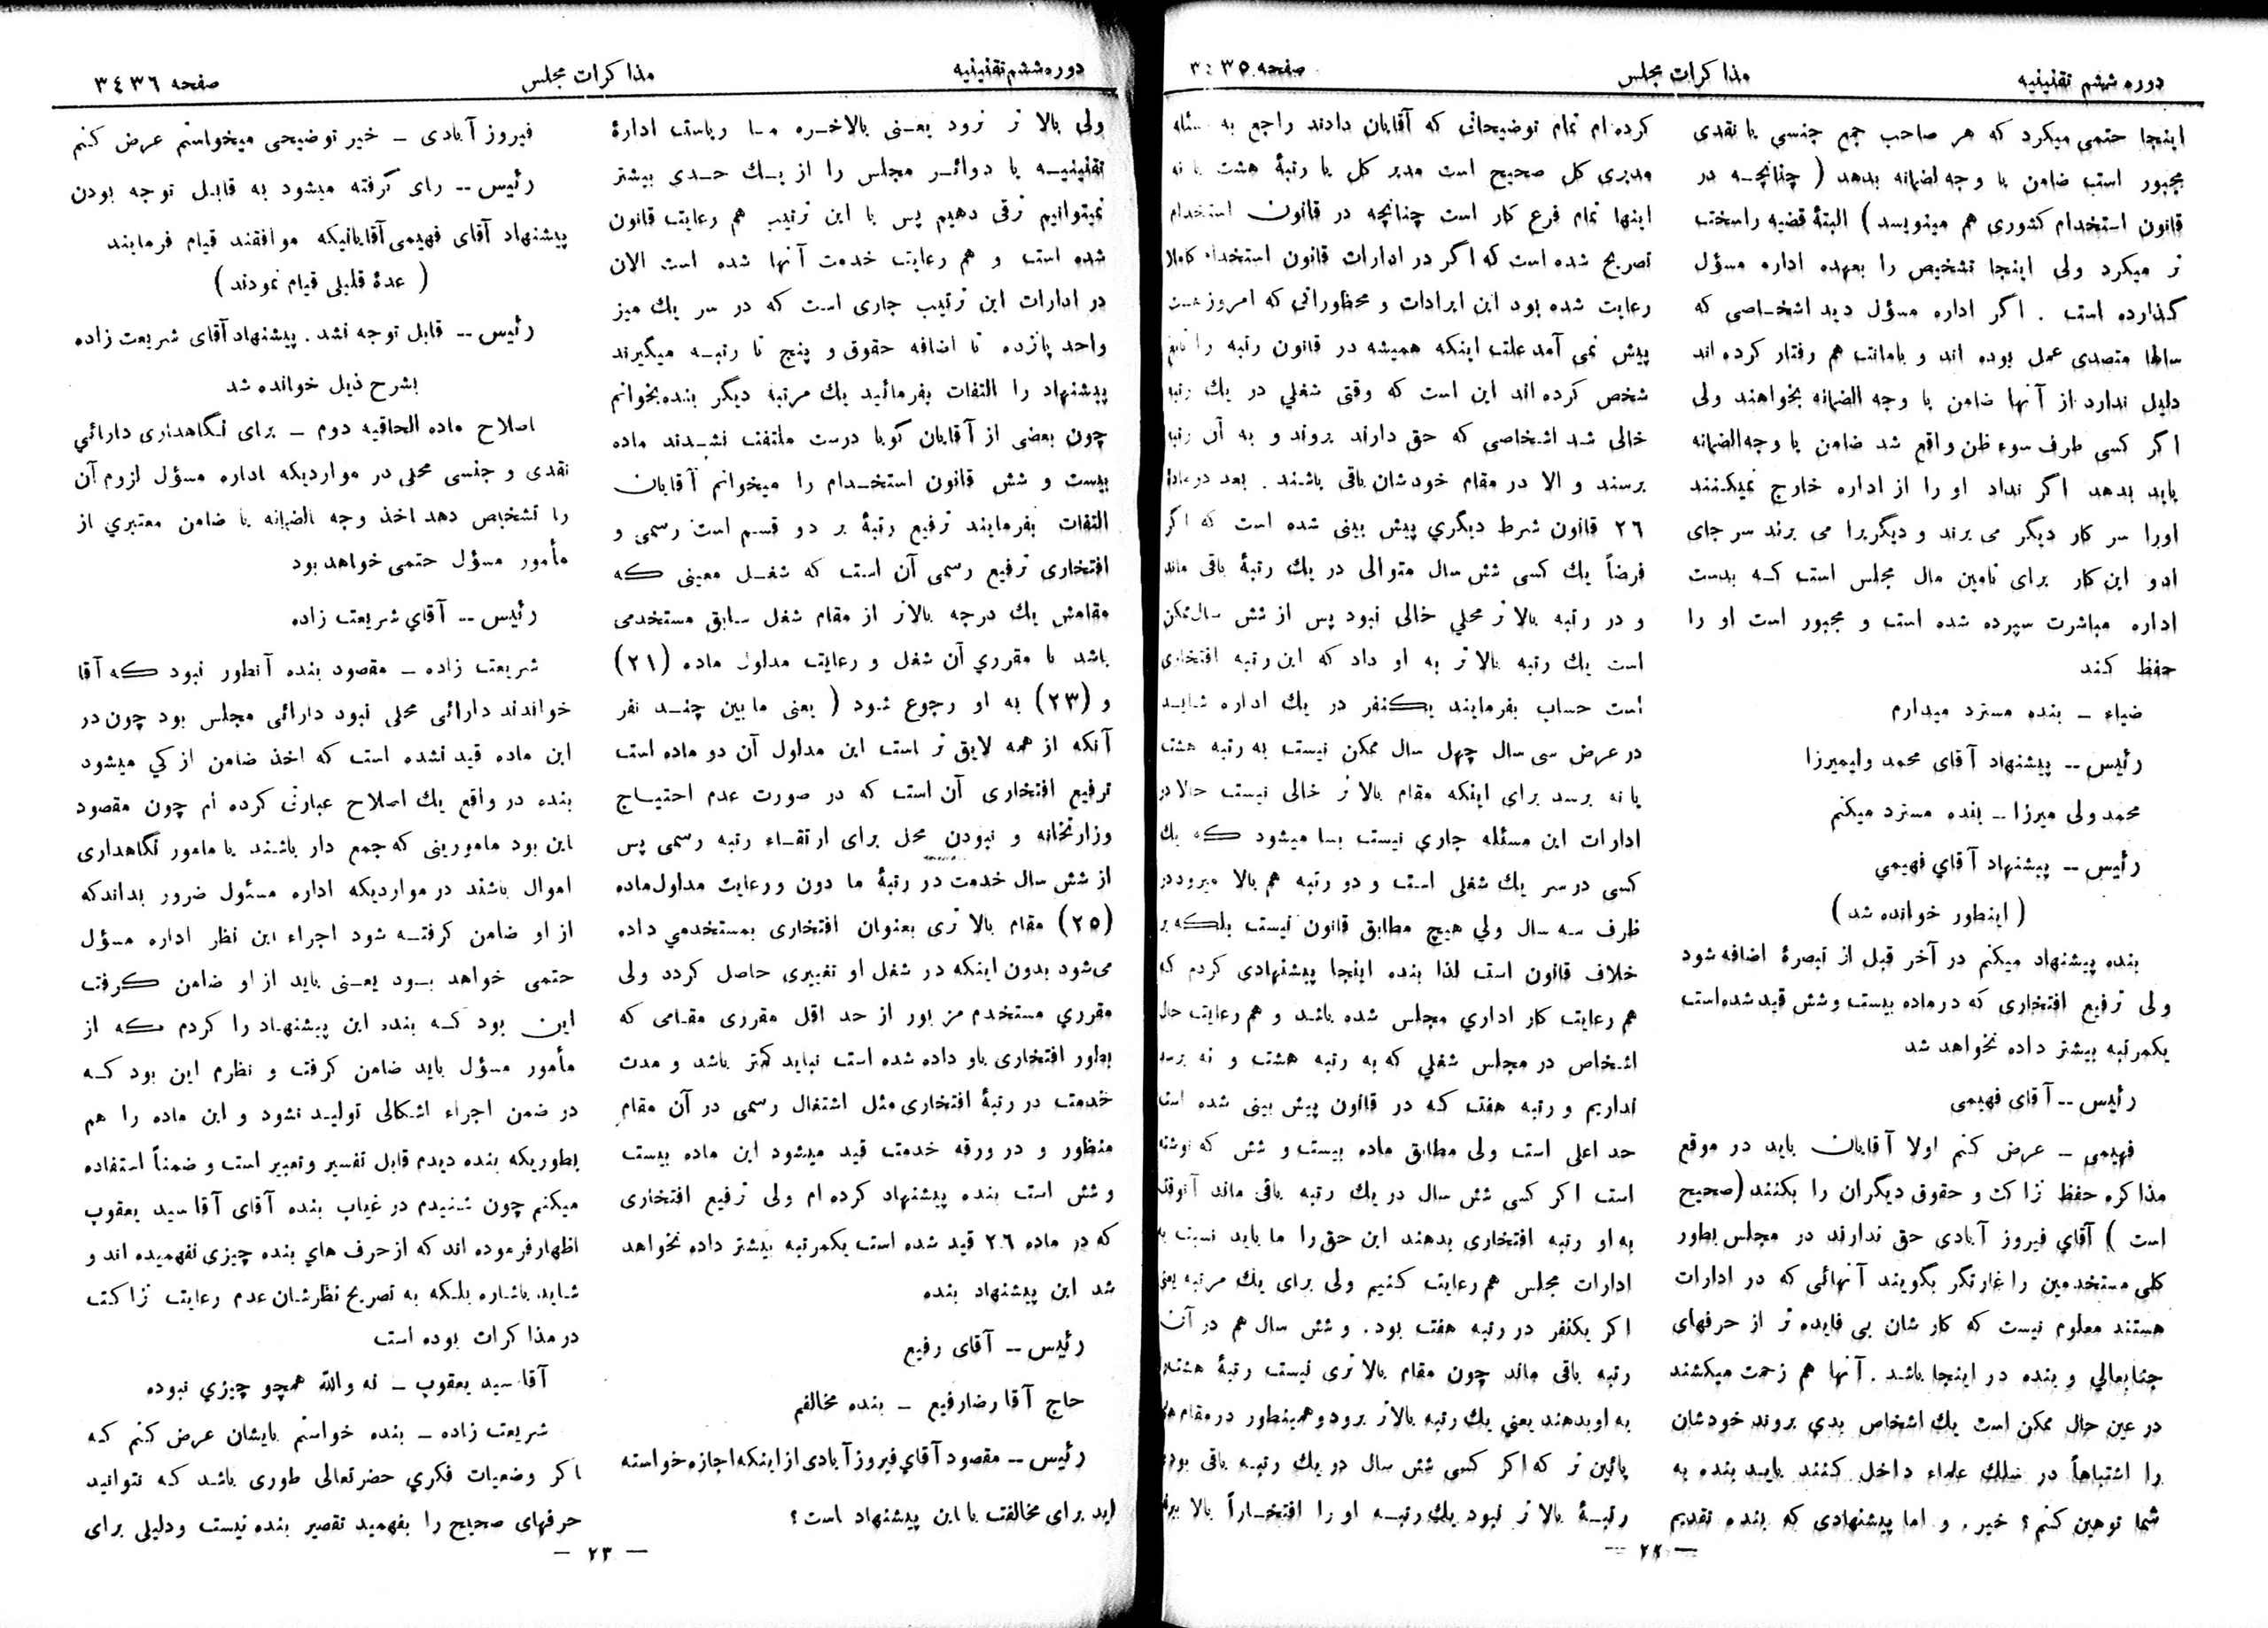 دوره ششم تقنینیه
مذاکرات مجلس
صفحه ۳۴۳۵
اینجا حتمی میکرد که هر صاحب جمع جنسی یا نقدی
مجبور است ضامن یا وجه الضمانه بدهد ( چنانچـه در
قانون استخدام کشوری هم مینویسد ) البته قضیه را سخت
تر میکرد ولی اینجا تشخیص را بعهده اداره مسؤل
گذارده است . اگر اداره مسؤل دید اشخـاصی که
سالها متصدی عمل بوده اند و بامانت هم رفتار کرده اند
دلیل ندارد از آنها ضامن یا وجه الضمانه بخواهند ولی
اگر کسی طرف سوء ظن واقع شد ضامن یا وجه الضمانه
باید بدهد اگر نداد او را از اداره خارج نمیکـنند
اورا سر کار دیگر می برند و دیگریرا می برند سر جای
ادو این کار برای تامین مال مجلس است کـه بدست
اداره مباشرت سپرده شده است و مجبور است او را
حفظ کند
ضیاء ـ بنده مسترد میدارم
رئیس -- پیشنهاد آقای محمد ولیمیرزا
محمد ولی میرزا ـ بنده مسترد میکنم
رئیس -- پیشنهاد آقاي فهیمي
( اینطور خوانده شد )
بنده پیشنهاد میکنم در آخر قبل از تبصرهٔ اضافه شود
ولی ترفیع افتخاری که در ماده بیست و شش قید شده است
یکمرتبه بیشتر داده نخواهد شد
رئیس -- آقای فهیمی
فهیمی ـ عرض کنم اولا آقایان باید در موقع
مذاکره حفظ نزاکت و حقوق دیگران را بکنند (صحیح
است ) آقاي فیروز آبادی حق ندارند در مجلس بطور
کلی مستخدمین را غارتگر بگویند آنهائی که در ادارات
هستند معلوم نیست که کار شان بی فایده تر از حرفهای
جنابعالي و بنده در اینجا باشد . آنها هم زحمت میکشند
در عین حال ممکن است یك اشخاص بدی بروند خودشان
را اشتباهاً در سلك علماء داخل کنند بایـد بنده به
شما توهین کنم ؟ خیر . و اما پیشنهادی که بنده تقدیم
کرده ام تمام توضیحاتی که آقایان دادند راجع به مسئله
مدیری کل صحیح است مدیر کل یا رتبهٔ هشت یا نه
اینها تمام فرع کار است چنانچه در قانون استخدام
تصریح شده است که اگر در ادارات قانون استخدام کاملا
رعایت شده بود این ایرادات و محظوراتی که امروز هست
پیش نمی آمد علت اینکه همیشه در قانون رتبه را تابع
شخص کرده اند این است که وقتی شغلي در یك رتبه
خالی شد اشخاصی که حق دارند بروند و به آن رتبه
برسند و الا در مقام خودشان باقی باشند . بعد در ماده
۲٦ قانون شرط دیگري پیش بینی شده است که اگر
فرضاً یك کسی شش سال متوالی در یك رتبهٔ باقی ماند
و در رتبه بالا تر محلي خالی نبود پس از شش سال ممکن
است یك رتبه بالا تر به او داد که این رتبه افتخاری
است حساب بفرمایند یکنفر در یك اداره شایـد
در عرض سی سال چهل سال ممکن نیست به رتبه هشت
یا نه برسد برای اینکه مقام بالا تر خالی نیست حالا در
ادارات این مسئله جاري نیست بسا میشود که یك
کسی در سر یك شغلی است و دو رتبه هم بالا میرود در
ظرف سه سال ولي هیچ مطابق قانون نیست بلکه بر
خلاف قانون است لذا بنده اینجا پیشنهادی کردم که
هم رعایت کار اداري مجلس شده باشد و هم رعایت حال
اشخاص در مجلس شغلي که به رتبه هشت و نه برسد
نداریم و رتبه هفت که در قانون پیش بینی شده است
حد اعلی است ولی مطابق ماده بیست و شش که نوشته
است اکر کسی شش سال در یك رتبه باقی ماند آنوقت
به او رتبه افتخاری بدهند این حق را ما باید نسبت به
ادارات مجلس هم رعایت کنیم ولی برای یك مرتبه یعنی
اکر یکنفر در رتبه هفت بود . و شش سال هم در آن
رتبه باقی ماند چون مقام بالا تری نیست رتبهٔ هشت
به او بدهند یعني یك رتبه بالاتر برود و همینطور در مقام های
پائین تر که اکر کسی شش سال در یك رتبـه باقی بود و
رتبـهٔ بالا تر نبود یك رتبـه او را افتخـاراً بالا ببرند
— ۲۲ —
دوره ششم تقنینیه
مذاکرات مجلس
صفحه ۳٤۳٦
ولی بالا تر نرود یعـنی بالاخـره مـا ریاست ادارهٔ
تقنینیـه یا دوائـر مجلس را از یـك حـدی بیشتر
نمیتوانیم ترقی دهیم پس با این ترتیب هم رعایت قانون
شده است و هم رعایت خدمت آنها شده است الان
در ادارات این ترتیب جاری است که در سر یك میز
واحد پانزده تا اضافه حقوق و پنج تا رتبـه میگیرند
پیشنهاد را التفات بفرمائید یك مرتبه دیگر بنده بخوانم
چون بعضی از آقایان گویا درست ملتفت نشـدند ماده
بیست و شش قانون استخـدام را میخوانم آقایان
التفات بفرمایند ترفیع رتبهٔ بر دو قسم است رسمی و
افتخاری ترفیع رسمی آن است که شغـل معینی که
مقامش یك درجه بالاتر از مقام شغل سابق مستخدمی
باشد با مقرري آن شغل و رعایت مدلول ماده (۲۱)
و (۲۳) به او رجوع شود ( یعنی ما بین چنـد نفر
آنکه از همه لایق تر است این مدلول آن دو ماده است
ترفیع افتخاری آن است که در صورت عدم احتیـاج
وزارتخانه و نبودن محل برای ارتقـاء رتبه رسمی پس
از شش سال خدمت در رتبهٔ ما دون و رعایت مدلول ماده
(۲۵) مقام بالا تری بعنوان افتخاری بمستخدمي داده
می‌شود بدون اینکه در شغل او تغییری حاصل گردد ولی
مقرري مستخدم مز بور از حد اقل مقرری مقـامی که
بطور افتخاری باو داده شده است نباید کمتر باشد و مدت
خدمت در رتبهٔ افتخاری مثل اشتغال رسمی در آن مقام
منظور و در ورقه خدمت قید میشود این ماده بیست
و شش است بنده پیشنهاد کرده ام ولی ترفیع افتخاری
که در ماده ۲٦ قید شده است یکمرتبه بیشتر داده نخواهد
شد این پیشنهاد بنده
رئیس -- آقای رفیع
حاج آقا رضا رفیع ـ بنده مخالفم
رئیس -- مقصود آقاي فیروز آبادی از اینکه اجازه خواسته
اید برای مخالفت با این پیشنهاد است ؟
فیروز آبادی ـ خیر توضیحی میخواستم عرض کنم
رئیس -- رای گرفته میشود به قابـل توجه بودن
پیشنهاد آقای فهیمی آقایانیکه موافقند قیام فرمایند
( عدهٔ قلیلی قیام نمودند )
رئیس -- قابل توجه نشد . پیشنهاد آقای شریعت زاده
بشرح ذیل خوانده شد
اصلاح ماده الحاقیه دوم ـ برای نگاهداری دارائي
نقدی و جنسی محلی در مواردیکه اداره مسؤل لزوم آن
را تشخیص دهد اخذ وجه الضمانه یا ضامن معتبري از
مأمور مسؤل حتمی خواهد بود
رئیس -- آقاي شریعت زاده
شریعت زاده ـ مقصود بنده آنطور نبود که آقا
خواندند دارائی محلی نبود دارائی مجلس بود چون در
این ماده قید نشده است که اخذ ضامن از کي میشود
بنده در واقع یك اصلاح عبارتی کرده ام چون مقصود
این بود مامورینی که جمع دار باشند یا مامور نگاهداری
اموال باشند در مواردیکه اداره مسئول ضرور بداند که
از او ضامن گرفتـه شود اجراء این نظر اداره مسؤل
حتمی خواهد بـود یعـنی باید از او ضامن گرفت
این بود کـه بنده این پیشنهـاد را کردم که از
مأمور مسؤل باید ضامن گرفت و نظرم این بود کـه
در ضمن اجراء اشکالی تولیـد نشود و این ماده را هم
بطوریکه بنده دیدم قابل تفسیر و تعبیر است و ضمناً استفاده
میکنم چون شنیدم در غیاب بنده آقای آقا سید یعقوب
اظهار فرموده اند که از حرف هاي بنده چیزی نفهمیده اند و
شاید باشاره بلـکه به تصریح نظرشان عدم رعایت نزاکت
در مذاکرات بوده است
آقا سید یعقوب ـ نه والله همچو چیزي نبوده
شریعت زاده ـ بنده خواستم بایشان عرض کنم کـه
اکر وضعیات فکري حضرتعالی طوری باشد کـه نتوانید
حرفهای صحیح را بفهمید تقصیر بنده نیست و دلیلی برای
— ۲۳ —